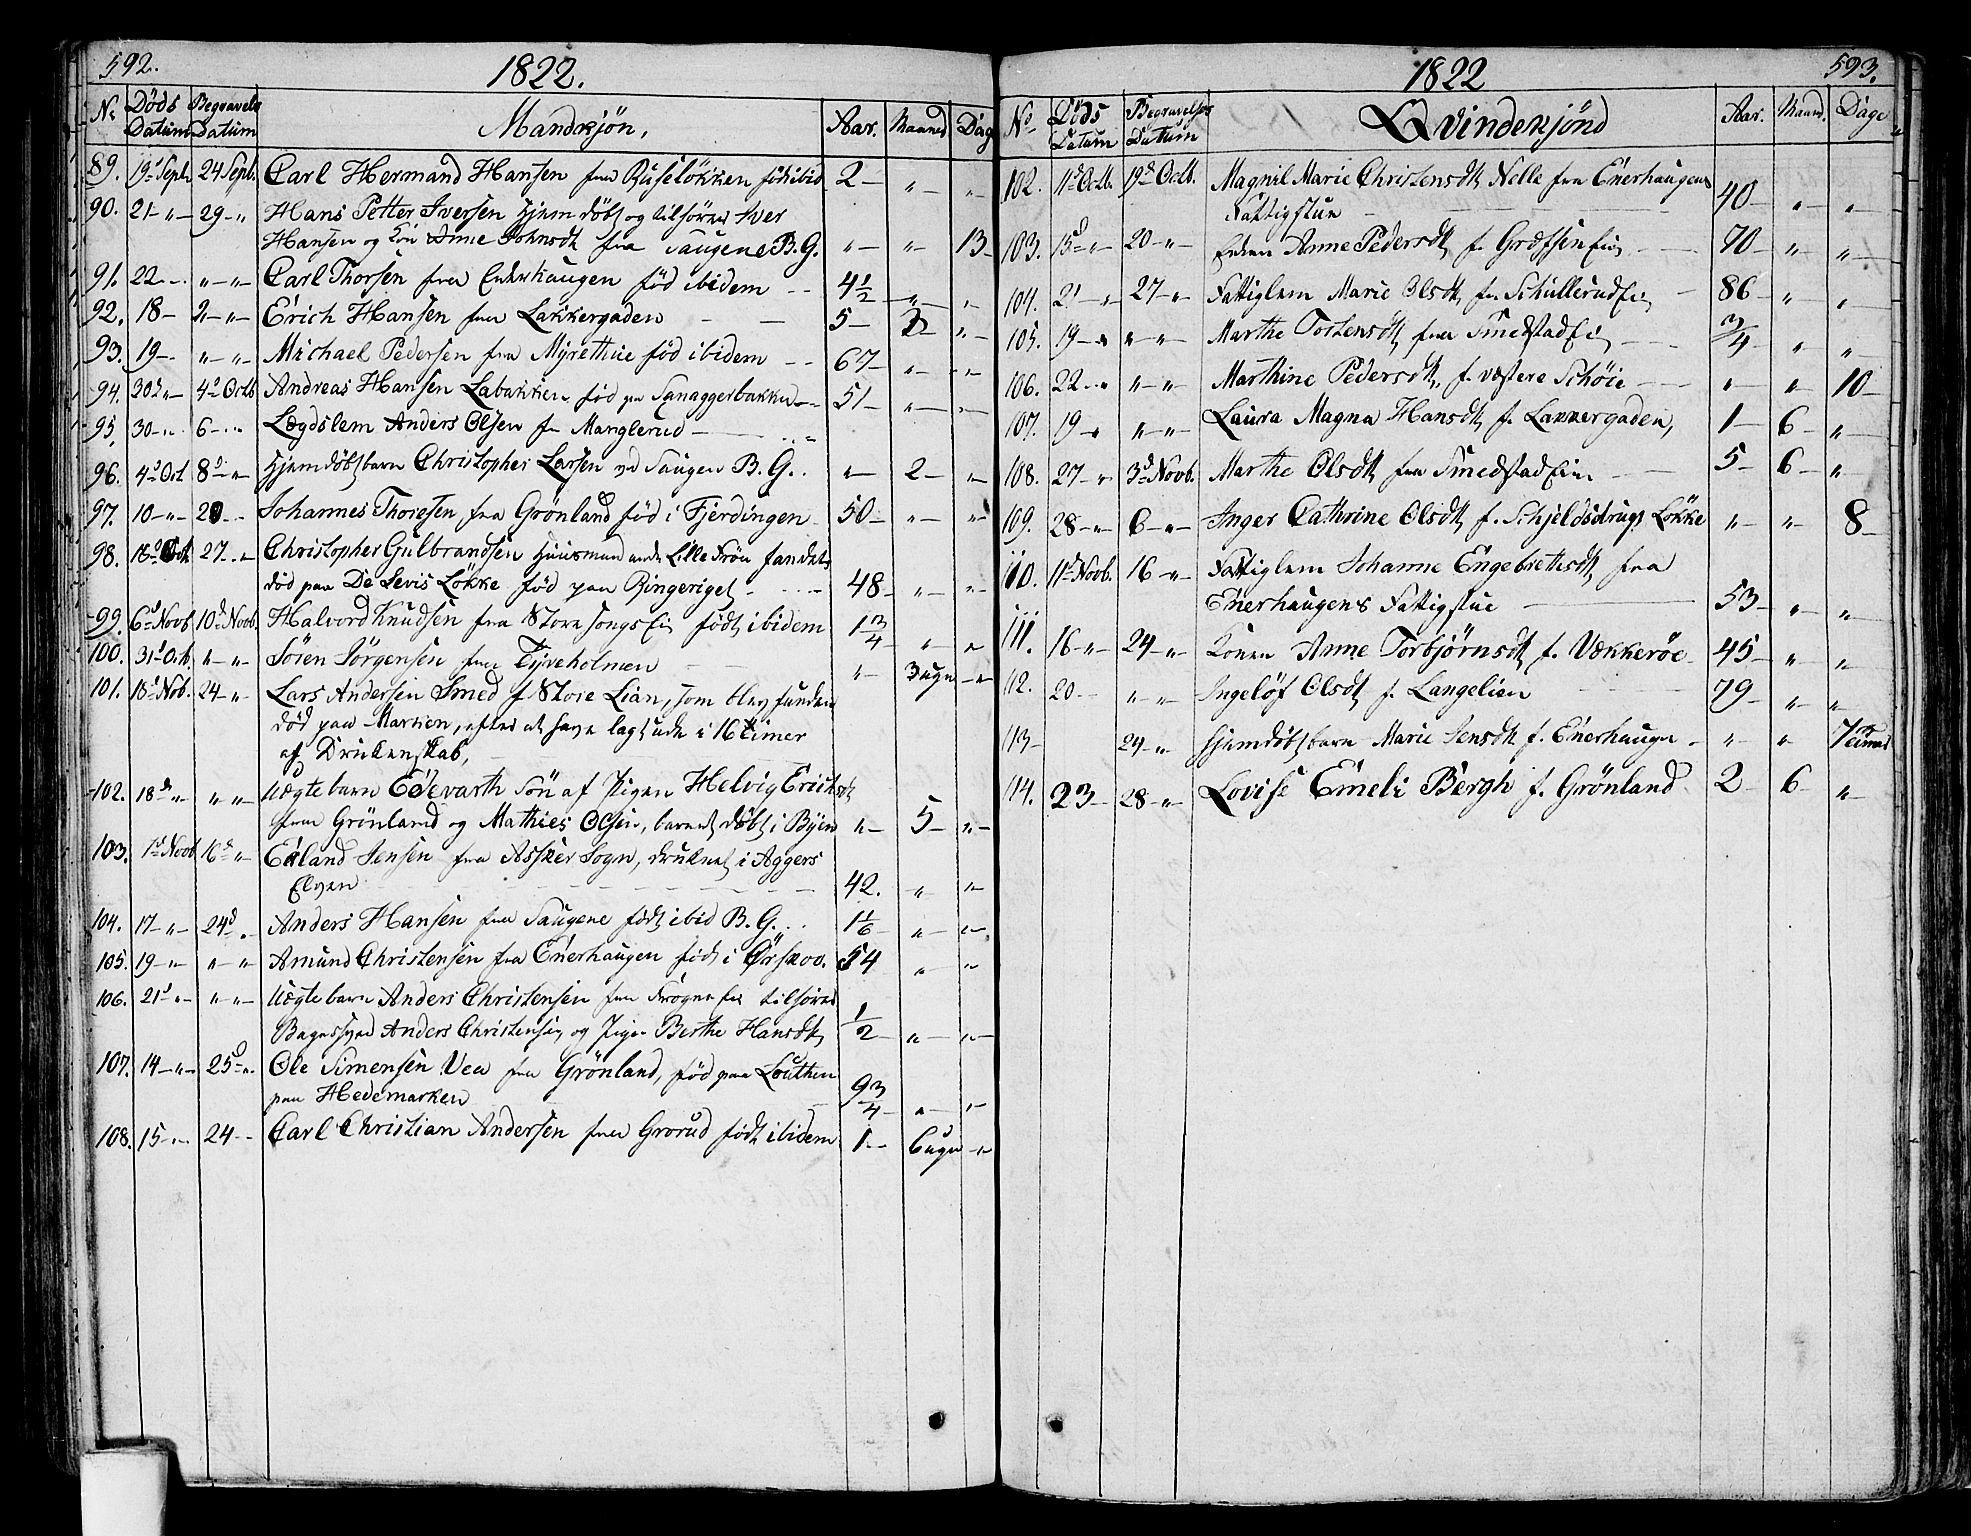 592.
1822.
Nr Døds Datum Begravels Datum Mandkjön, Aar. Maaned Dag
89. 19d Sept. 24 Sept. Carl Hermand Hansen fra Ruseløkken föd ibid 2 – „ – „
90. 21 – „ – 29 – „ Hans Petter Iversen Hjemdöbt og tilhörer Iver
Hansen og Kone Anne Johnsdt fra Saugene B.G. „ – „ – 13 –
91. 22 – „ – „ Carl Thorsen fra Enerhaugen föd ibidem 4½ – „ – „
92. 18 – 2 – „ Erich Hansen fra Lakkergaden 5 – 3 – „
93. 19 – „ – „ Michael Pedersen fra Myrethue föd ibidem 67 – „ – „
94. 30d „ – 4d Octb Andreas Hansen Labakken föd paa 51 – „ – „
95. 30 – „ 6 – „ Lægdslem Anders Olsen fra Manglerud – „
96. 4d Oct 8d – „ Hjemdöbt barn Christopher Larsen ved Saugen B.G. „ – 2 – „
97. 10 – „ 20 – Johannes Thoresen fra Grönland föd i Fjerdingen 50 – „ – „
98. 18d Oct 27 – „ Christopher Gulbrandsen Huusmand under Lille Frön fandtes
död paa De Levis Løkke föd paa Ringeriget 48 – „ – „
99. 6d Novb 10d Novb. Halvord Knudsen fra Store Songs Ei födt ibidem 1¾ – „ – „
100. 31d Oct „ – „ Sören Jörgensen fra Tyveholmen „ – 3 uger – „
101. 18d Nob. 24 – „ Lars Andersen Smed f Store Lian, som blev funden
död paa Marken, efter at have lagt ude i 16 timer
af Drukenskab,
102. 18d „ „ „ Uægte barn Edevarth Sön af Pigen Helvig Erichsdt
fra Grönland og Mathies Olsen, barnet döbt i Byen „ – 5 – „ –
103. 1d Novb 16d „ Erland Jensen fra Asker Sogn, druknet i Aggers
Elven 42. „ „
104. 17 – „ 24d „ Anders Hansen fra Saugene födt ibid B.G. 1⅙ – „ – „
105. 19 – „ „ – „ Amund Christensen fra Enerhaugen födt i Örskov. 54 „ – „
106. 21d „ – „ „ – Uægte barn Anders Christensen fra Frogner tilhörer
Anders Christensen og Pigen Berthe Hansdt, ½ – „ – „
107. 14 – „ – 25d – „ Ole Simensen Vea fra Grönland, föd paa Löuthen
paa Hedemarken 9¾ – „ – „
108. 15 – „ – 24 – Carl Christian Andersen fra Grorud födt ibidem 1 – 6 uger – „
1822
593.
No Döds Datum Begravelses Datum Qvindekjönd Aar. Maand. Dage
102. 11d Octb. 19d Octb. Magnil Marie Christensdt Nelle fra Enerhaugens
Fattigstue 40 – „ – „
103. 15d – „ 20 – „ Enken Anne Pedersdt f. Græfsen Ei 70 – „ „
104. 21 – „ 27 – „ Fattiglem Marie Olsdt fra Schullerud Ei 86 – „ „
105. 19 – „ „ – „ Marthe Tostensdt fra Smedstad Ei ¾ „ „
106. 22 – „ „ – „ Marthine Pedersdt, f. Vestere Schöie „ – „ 10 –
107. 19 – „ „ – „ Laura Magna Hansdt f. Lakkergaden, 1 – 6 – „
108. 27 – „ 3d Novb. Marthe Olsdt fra Smedstad Ei 5 – 6 – „
109. 28 – „ 6 – „ Inger Cathrine Olsdt f. Schjeldsdrups Lökke „ – „ 8 –
110. 11d Novb. 16 – „ Fattiglem Johanne Engebrethsdt fra
Enerhaugens Fattigstue 53 – „ „
111. 16 – „ 24 – „ Konen Anne Torbjörnsdt f. Vækkeröe 45 – „ „
112. 20 – „ – „ Ingelöf Olsdt f. Langelien 79 – „ „
113 – 24 – „ Hjemdöbt barn Marie Jensdt f. Enerhaugen „ – „ 7 timer
114. 23 – 28 – „ Lovise Emeli Bergh f. Grönland 2 – 6 – „